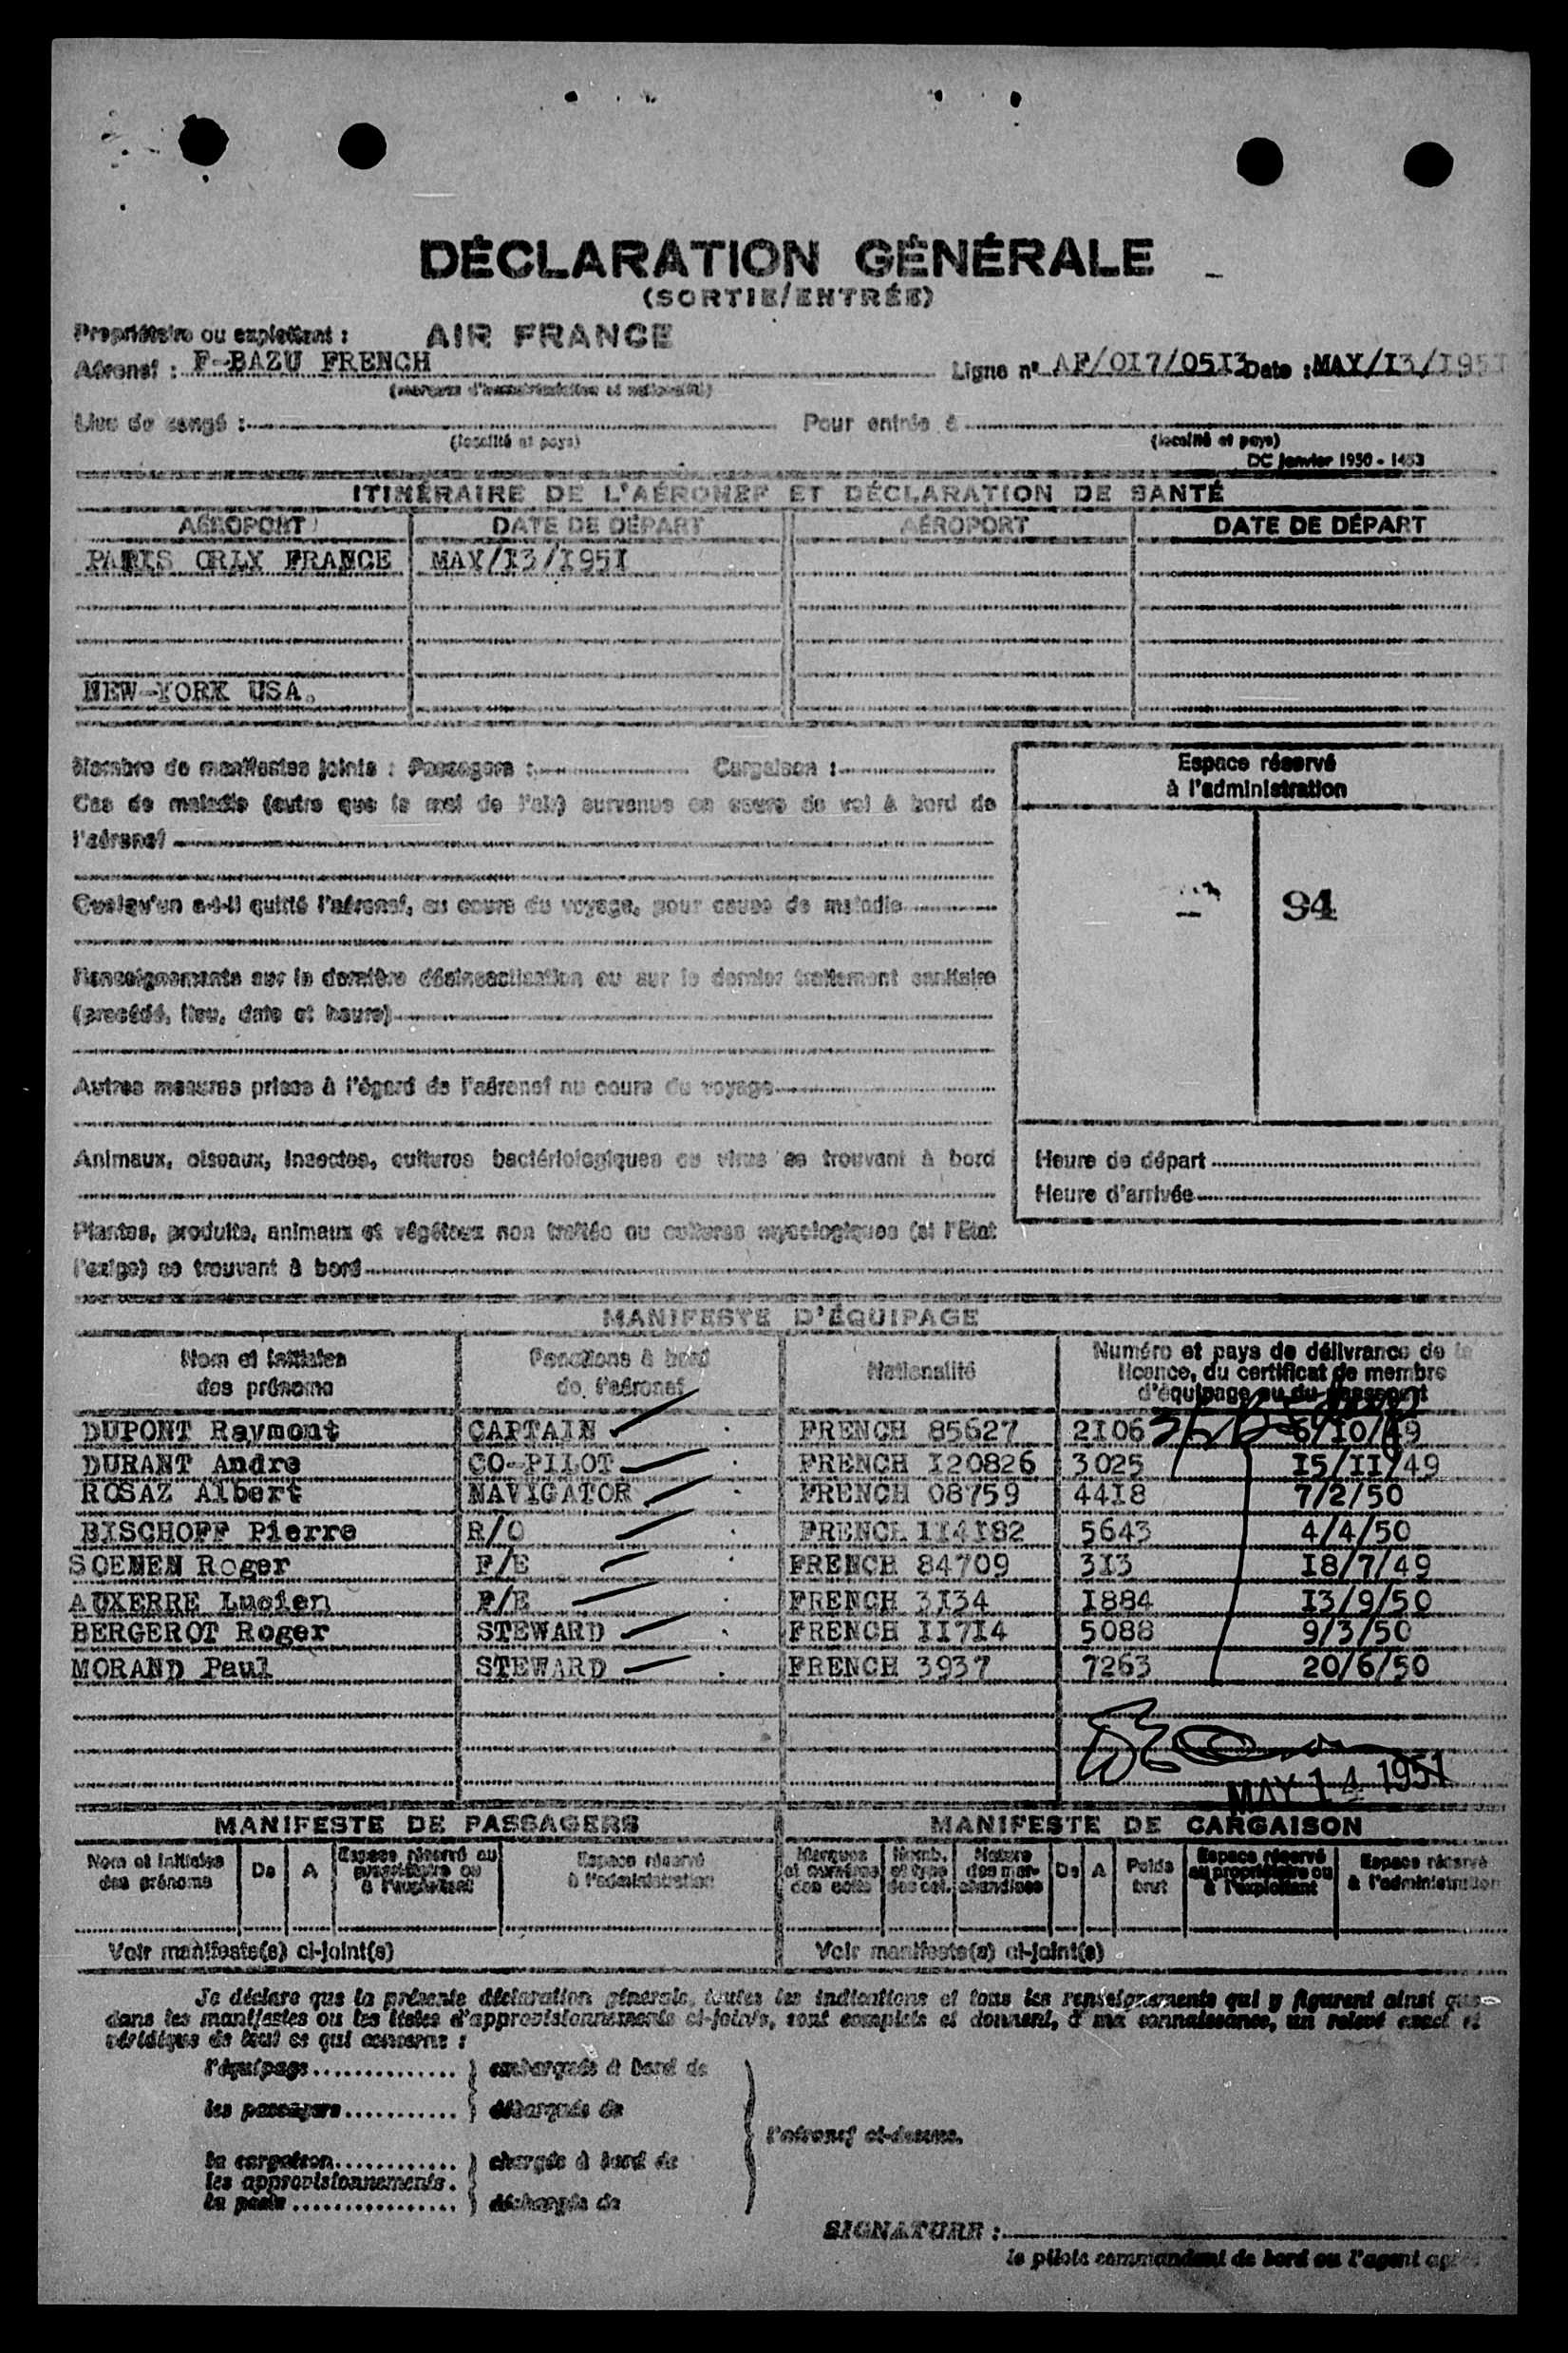 DÉCLARATION GÉNÉRALE
(SORTIE/ENTRÉE)
Propriétaire ou exploitant : AIR FRANCE
Aéronef : F-BAZU FRENCH Ligne n° AF/OI7/05I3 Date : MAY/I3/I951
(marques d'immatriculation et nationalité)
Lieu de congé : Pour entrée à
(localité et pays) (localité et pays)
DC Janvier 1950 - 1453
ITINÉRAIRE DE L'AÉRONEF ET DÉCLARATION DE SANTÉ
AÉROPORT DATE DE DÉPART AÉROPORT DATE DE DÉPART
PARIS ORLY FRANCE MAY/I3/I95I
NEW-YORK USA.
Nombre de manifestes joints : Passagers : Cargaison :
Espace réservé
à l'administration
Cas de maladie (autre que le mal de l'air) survenus en cours de vol à bord de
l'aéronef
94
Quelqu'un a-t-il quitté l'aéronef, au cours du voyage, pour cause de maladie
Renseignements sur la dernière désinsectisation ou sur le dernier traitement sanitaire
(procédé, lieu, date et heure)
Autres mesures prises à l'égard de l'aéronef au cours du voyage
Animaux, oiseaux, insectes, cultures bactériologiques ou virus se trouvant à bord
Heure de départ
Heure d'arrivée
Plantes, produits, animaux et végétaux non traités ou cultures mycologiques (si l'État
l'exige) se trouvant à bord
MANIFESTE D'ÉQUIPAGE
Nom et initiales des prénoms Fonctions à bord de l'aéronef Nationalité Numéro et pays de délivrance de la licence, du certificat de membre d'équipage ou du passeport
DUPONT Raymont CAPTAIN FRENCH 85627 2I06 6/I0/49
DURANT Andre CO-PILOT FRENCH I20826 3025 I5/II/49
ROSAZ Albert NAVIGATOR FRENCH 08759 44I8 7/2/50
BISCHOFF Pierre R/O FRENCH II4I82 5643 4/4/50
SOENEN Roger F/E FRENCH 84709 3I3 I8/7/49
AUXERRE Lucien F/E FRENCH 3I34 I884 I3/9/50
BERGEROT Roger STEWARD FRENCH II7I4 5088 9/3/50
MORAND Paul STEWARD FRENCH 3937 7263 20/6/50
MAY 14 1951
MANIFESTE DE PASSAGERS MANIFESTE DE CARGAISON
Nom et initiales des prénoms De A Espace réservé au propriétaire ou à l'exploitant Espace réservé à l'administration Marques et numéros des colis Nomb. et type des col. Nature des marchandises De A Poids brut Espace réservé au propriétaire ou à l'exploitant Espace réservé à l'administration
Voir manifeste(s) ci-joint(s) Voir manifeste(s) ci-joint(s)
Je déclare que la présente déclaration générale, toutes les indications et tous les renseignements qui y figurent ainsi que
dans les manifestes ou les listes d'approvisionnements ci-joints, sont complets et donnent, à ma connaissance, un relevé exact et
véridique de tout ce qui concerne :
l'équipage.............. } embarqués à bord de
les passagers........... } débarqués de
l'aéronef ci-dessus.
la cargaison............ } chargés à bord de
les approvisionnements.
la poste................ } déchargés de
SIGNATURE :
le pilote commandant de bord ou l'agent